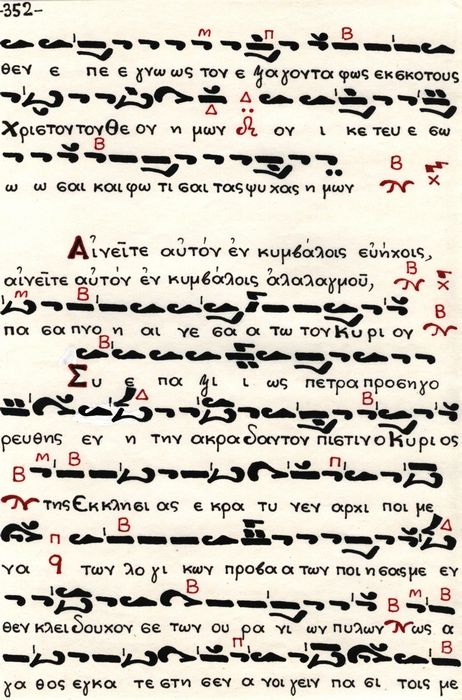 -352-
θεν ε πε ε γνω ως τον ε ξα γα γοντα φως εκ σκοτους
Χριστον τον Θε ον η μων ον ι κε τευ ε σω
ω ω σαι και φω τι σαι τας ψυ χας η μων
Αἰνεῖτε αὐτόν ἐν κυμβάλοις εὐήχοις,
αἰνεῖτε αὐτόν ἐν κυμβάλοις ἀλαλαγμοῦ,
πα σα πνο η αι νε σα α τω τον Κυρι ον
Συ ε πα ξι ι ως πετρα προσηγο
ρευθης εν η την ακρα δαντον πιστιν ο Κυρι ος
της Εκκλησι ας ε κρα τυ νεν αρχι ποι με
να των λο γι κων προβα α των ποι η σας με εν
θεν κλειδουχον σε των ου ρα νι ων πυλων ως α
γα θος εγκα τε στη σεν α νοι γειν πα σι τοις με